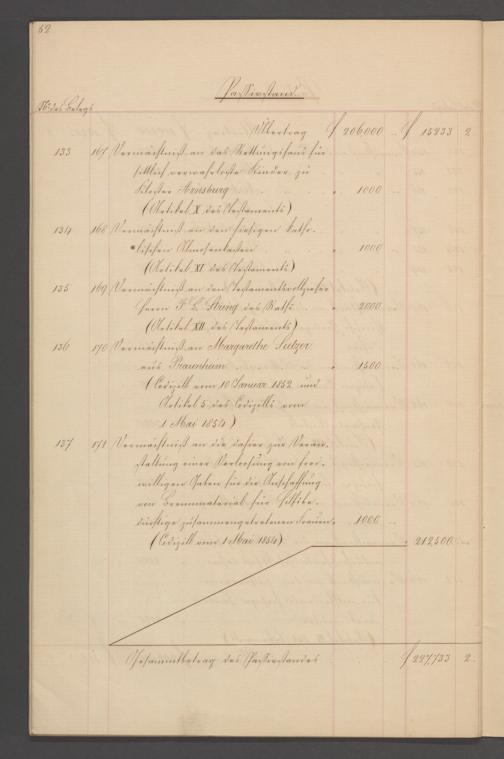 62
Passivstand.
No. des Belegs
Übertrag f 206000 .. f 15233 2
133 167 Vermächtniß an das Rettungshaus für
sittlich verwahrloste Kinder zu
Kloster Arnsburg " 1000 ..
(Artikel X des Testaments)
134 168 Vermächtniß an den hiesigen katho-
lischen Almosenkasten " 1000 ..
(Artikel XI des Testaments)
135 169 Vermächtniß an den Testamentsvollzieher
Herrn des Raths " 2000 ..
(Artikel XII des Testaments)
136 170 Vermächtniß an Margarethe
aus Praunheim " 1500 ..
(Codizill vom 10 Januar 1852 und
Artikel 5 des Codizills vom
1 Mai 1854)
137 171 Vermächtniß an die dahier zur Veran-
staltung einer Verloosung von frei-
willigen Gaben für die Anschaffung
von Brennmaterial für Hilfsbe-
dürftige zusammengetretenen Frauen " 1000 ..
(Codizill vom 1 Mai 1854) " 212500 ..
Gesammtbetrag des Passivstandes f 227733 2